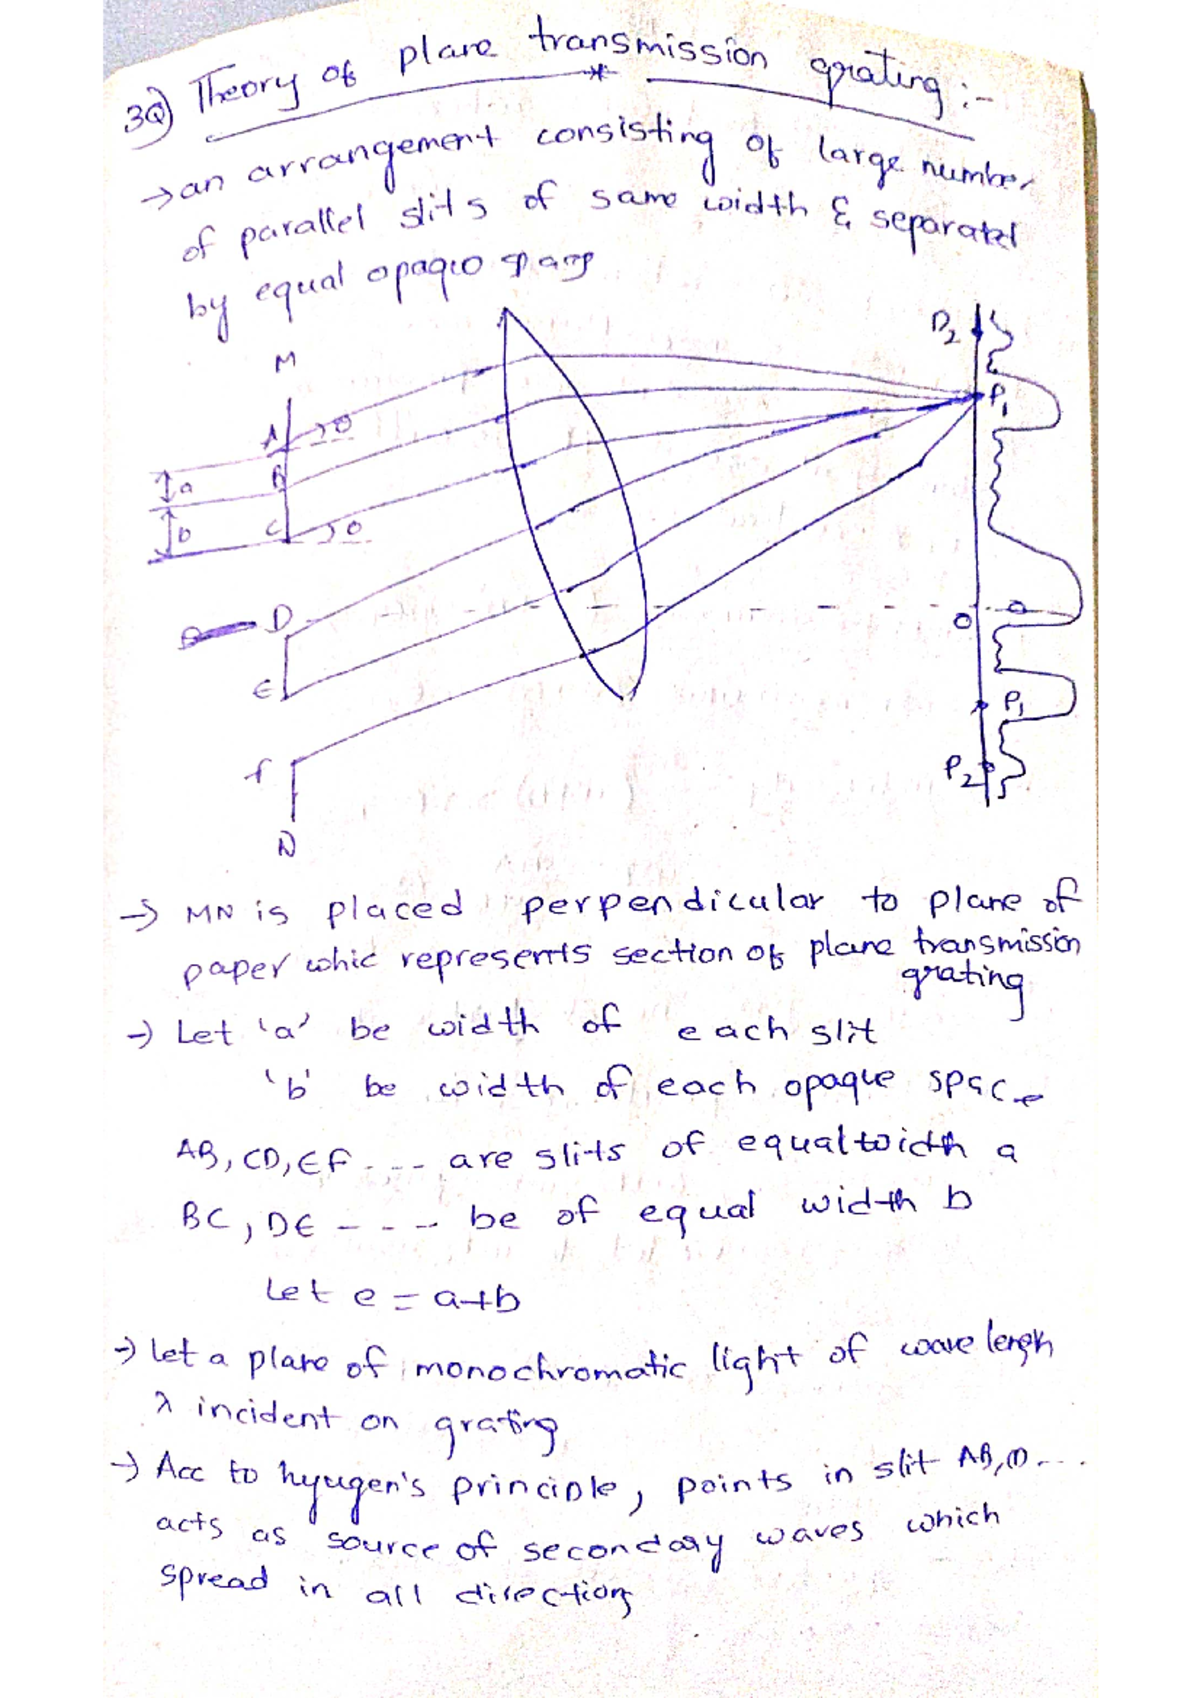 3Q) Theory of plane transmission grating :-
→ an arrangement consisting of large number
of parallel slits of same width & separated
by equal opaque
M
P2
P1
A θ
a
B
b
C θ
D
O
E
P1
F
P2
N
→ MN is placed perpendicular to plane of
paper whic represents section of plane transmission
grating
→ Let 'a' be width of each slit
'b' be width of each opaque space
AB, CD, EF - - - are slits of equal width a
BC, DE - - - be of equal width b
Let e = a+b
→ let a plane of monochromatic light of wave length
λ incident on grating
→ Acc to hyugen's principle, points in slit AB, CD - - .
acts as source of secondary waves which
spread in all directions